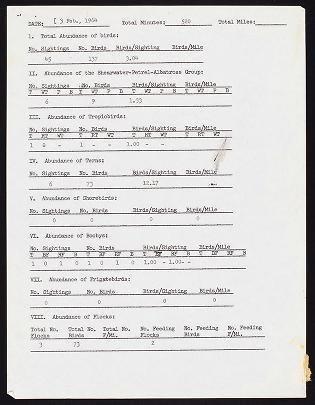 DATE: [ 3 Feb., 1964 Total Minutes: 520 Total Miles:
I. Total Abundance of birds:
No. Sightings No. Birds Birds/Sighting Birds/Mile
45 137 3.04
II. Abundance of the Shearwater-Petrel-Albatross Group:
No. Sightings No. Birds Birds/Sighting Birds/Mile
T WT P B T WT P B T WT P B T WT P B
6 9 1.33
III. Abundance of Tropicbirds:
No. Sightings No. Birds Birds/Sighting Birds/Mile
T RT WT T RT WT T RT WT T RT WT
1 0 - 1 - - 1.00 - -
IV. Abundance of Terns:
No. Sightings No. Birds Birds/Sighting Birds/Mile
6 73 12.17
V. Abundance of Shorebirds:
No. Sightings No. Birds Birds/Sighting Birds/Mile
0 0 0 0
VI. Abundance of Boobys:
No. Sightings No. Birds Birds/Sighting Birds/Mile
T BF RF B T BF RF B T BF RF B T BF RF B
1 0 1 0 1 0 1 0 1.00 - 1.00 -
VII. Abundance of Frigatebirds:
No. Sightings No. Birds Birds/Sighting Birds/Mile
0 0 0 0
VIII. Abundance of Flocks:
Total No. Total No. Total No. No. Feeding No. Feeding No. Feeding
Flocks Birds F/Mi. Flocks Birds F/Mi.
3 73 2